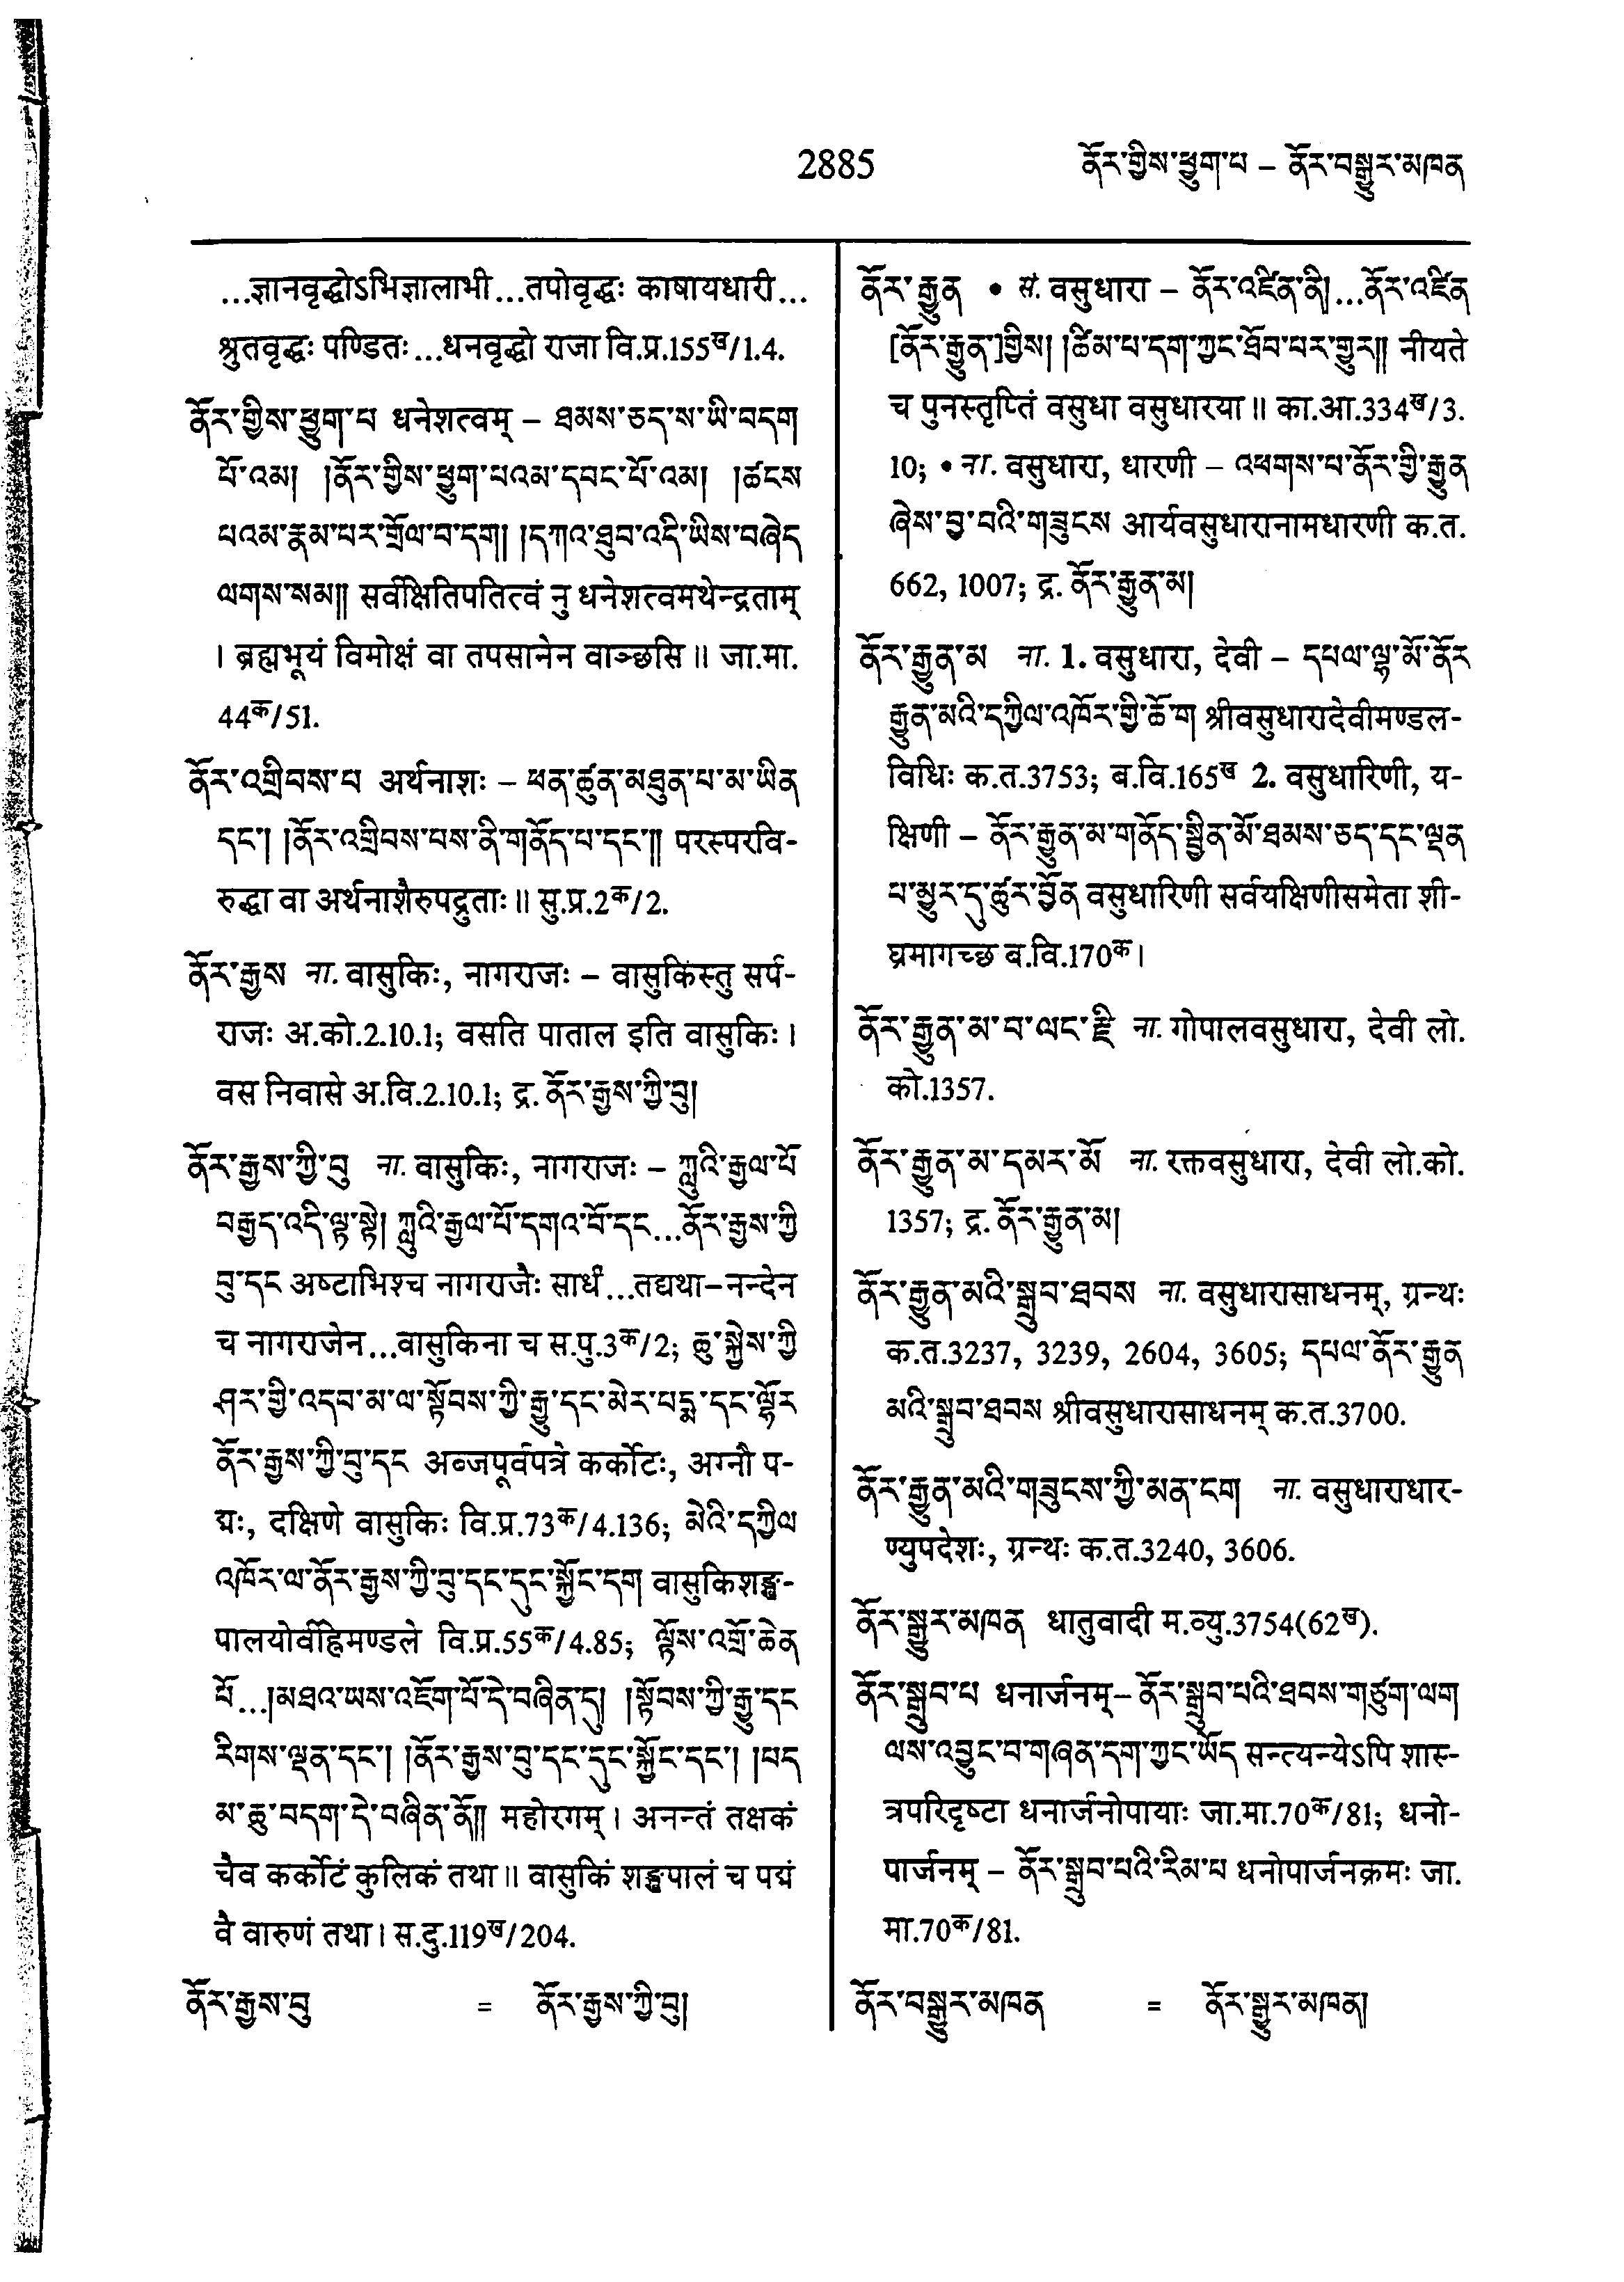 2885
ནོར་གྱིས་ཕྱུག་པ – ནོར་བསྒྱུར་མཁན
...ज्ञानवृद्धोऽभिज्ञालाभी...तपोवृद्धः काषायधारी...
श्रुतवृद्धः पण्डितः...धनवृद्धो राजा वि.प्र.155ख/1.4.
ནོར་གྱིས་ཕྱུག་པ धनेशत्वम् – ཐམས་ཅད་ས་ཡི་བདག
པོ་འམ། །ནོར་གྱིས་ཕྱུག་པའམ་དབང་པོ་འམ། །ཚངས
པའམ་རྣམ་པར་གྲོལ་བ་དག། །དཀའ་ཐུབ་འདི་ཡིས་བཞེད
ལགས་སམ།། सर्वक्षितिपतित्वं नु धनेशत्वमथेन्द्रताम्
। ब्रह्मभूयं विमोक्षं वा तपसानेन वाञ्छसि ॥ जा.मा.
44क/51.
ནོར་འགྲིབས་པ अर्थनाशः – ཕན་ཚུན་མཐུན་པ་མ་ཡིན
དང་། །ནོར་འགྲིབས་པས་ནི་གནོད་པ་དང་།། परस्परवि-
रुद्धा वा अर्थनाशैरुपद्रुताः ॥ सु.प्र.2क/2.
ནོར་རྒྱས ना. वासुकिः, नागराजः – वासुकिस्तु सर्प-
राजः अ.को.2.10.1; वसति पाताल इति वासुकिः ।
वस निवासे अ.वि.2.10.1; द्र. ནོར་རྒྱས་ཀྱི་བུ།
ནོར་རྒྱས་ཀྱི་བུ ना. वासुकिः, नागराजः – ཀླུའི་རྒྱལ་པོ
བརྒྱད་འདི་ལྟ་སྟེ། ཀླུའི་རྒྱལ་པོ་དགའ་བོ་དང...ནོར་རྒྱས་ཀྱི
བུ་དང अष्टाभिश्च नागराजैः सार्धं...तद्यथा–नन्देन
च नागराजेन...वासुकिना च स.पु.3क/2; ཆུ་སྐྱེས་ཀྱི
ཤར་གྱི་འདབ་མ་ལ་སྟོབས་ཀྱི་རྒྱུ་དང་མེར་པདྨ་དང་ལྷོར
ནོར་རྒྱས་ཀྱི་བུ་དང अब्जपूर्वपत्रे कर्कोटः, अग्नौ प-
द्मः, दक्षिणे वासुकिः वि.प्र.73क/4.136; མེའི་དཀྱིལ
འཁོར་ལ་ནོར་རྒྱས་ཀྱི་བུ་དང་དུང་སྐྱོང་དག वासुकिशङ्ख-
पालयोर्वह्निमण्डले वि.प्र.55क/4.85; ལྟོས་འགྲོ་ཆེན
པོ...།མཐའ་ཡས་འཇོག་པོ་དེ་བཞིན་དུ། །སྟོབས་ཀྱི་རྒྱུ་དང
རིགས་ལྡན་དང་། །ནོར་རྒྱས་བུ་དང་དུང་སྐྱོང་དང་། །པད
མ་ཆུ་བདག་དེ་བཞིན་ནོ།། महोरगम् । अनन्तं तक्षकं
चैव कर्कोटं कुलिकं तथा ॥ वासुकिं शङ्खपालं च पद्मं
वै वारुणं तथा । स.दु.119ख/204.
ནོར་རྒྱས་བུ = ནོར་རྒྱས་ཀྱི་བུ།
ནོར་རྒྱུན • सं. वसुधारा – ནོར་འཛིན་ནི།...ནོར་འཛིན
[ནོར་རྒྱུན་]གྱིས། །ཚིམ་པ་དག་ཀྱང་ཐོབ་པར་གྱུར།། नीयते
च पुनस्तृप्तिं वसुधा वसुधारया ॥ का.आ.334ख/3.
10; • ना. वसुधारा, धारणी – འཕགས་པ་ནོར་གྱི་རྒྱུན
ཞེས་བྱ་བའི་གཟུངས आर्यवसुधारानामधारणी क.त.
662, 1007; द्र. ནོར་རྒྱུན་མ།
ནོར་རྒྱུན་མ ना. 1. वसुधारा, देवी – དཔལ་ལྷ་མོ་ནོར
རྒྱུན་མའི་དཀྱིལ་འཁོར་གྱི་ཆོ་ག श्रीवसुधारादेवीमण्डल-
विधिः क.त.3753; ब.वि.165ख 2. वसुधारिणी, य-
क्षिणी – ནོར་རྒྱུན་མ་གནོད་སྦྱིན་མོ་ཐམས་ཅད་དང་ལྡན
པ་མྱུར་དུ་ཚུར་བྱོན वसुधारिणी सर्वयक्षिणीसमेता शी-
घ्रमागच्छ ब.वि.170क ।
ནོར་རྒྱུན་མ་བ་ལང་རྫི ना. गोपालवसुधारा, देवी लो.
को.1357.
ནོར་རྒྱུན་མ་དམར་མོ ना. रक्तवसुधारा, देवी लो.को.
1357; द्र. ནོར་རྒྱུན་མ།
ནོར་རྒྱུན་མའི་སྒྲུབ་ཐབས ना. वसुधारासाधनम्, ग्रन्थः
क.त.3237, 3239, 2604, 3605; དཔལ་ནོར་རྒྱུན
མའི་སྒྲུབ་ཐབས श्रीवसुधारासाधनम् क.त.3700.
ནོར་རྒྱུན་མའི་གཟུངས་ཀྱི་མན་ངག ना. वसुधाराधार-
ण्युपदेशः, ग्रन्थः क.त.3240, 3606.
ནོར་སྒྱུར་མཁན धातुवादी म.व्यु.3754(62ख).
ནོར་སྒྲུབ་པ धनार्जनम्– ནོར་སྒྲུབ་པའི་ཐབས་གཙུག་ལག
ལས་འབྱུང་བ་གཞན་དག་ཀྱང་ཡོད सन्त्यन्येऽपि शास्-
त्रपरिदृष्टा धनार्जनोपायाः जा.मा.70क/81; धनो-
पार्जनम् – ནོར་སྒྲུབ་པའི་རིམ་པ धनोपार्जनक्रमः जा.
मा.70क/81.
ནོར་བསྒྱུར་མཁན = ནོར་སྒྱུར་མཁན།